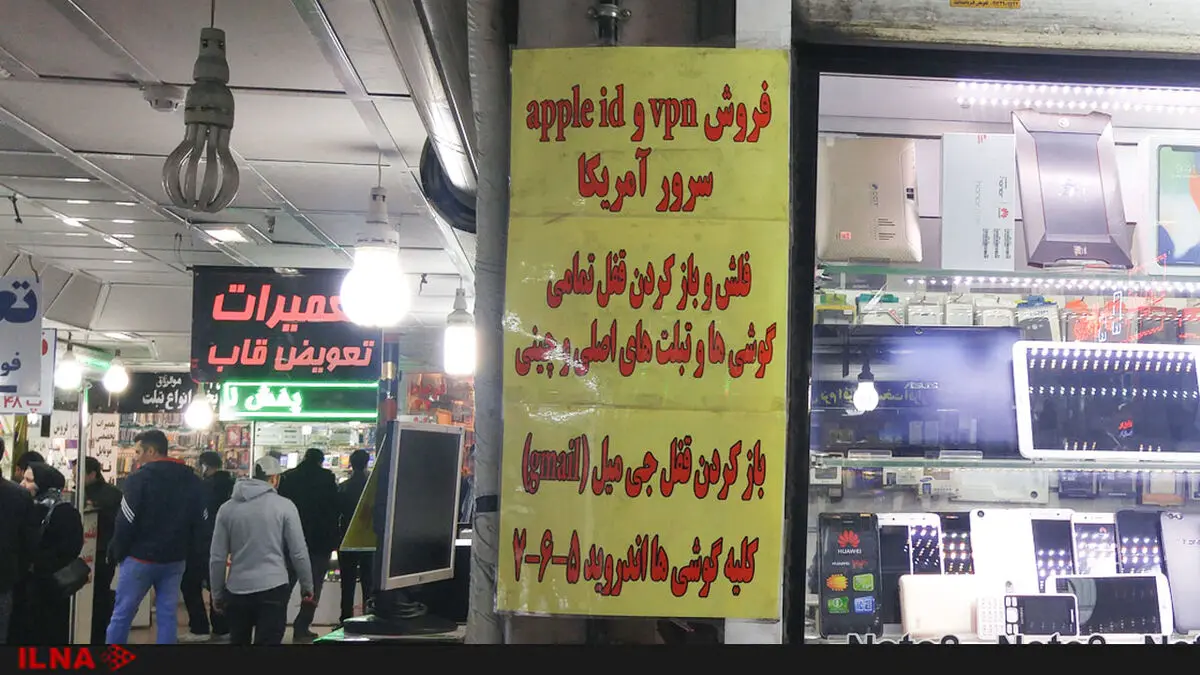 فروش vpn و apple id
سرور آمریکا
فلش و باز کردن قفل تمامی
گوشی ها و تبلت های اصلی و چینی
باز کردن قفل جی میل (gmail)
کلیه گوشی ها اندروید ۵-۶-۷
تعمیرات
تعویض قاب
پخش
انواع تبلت
پ ۴۸
HUAWEI
honor
ILNA